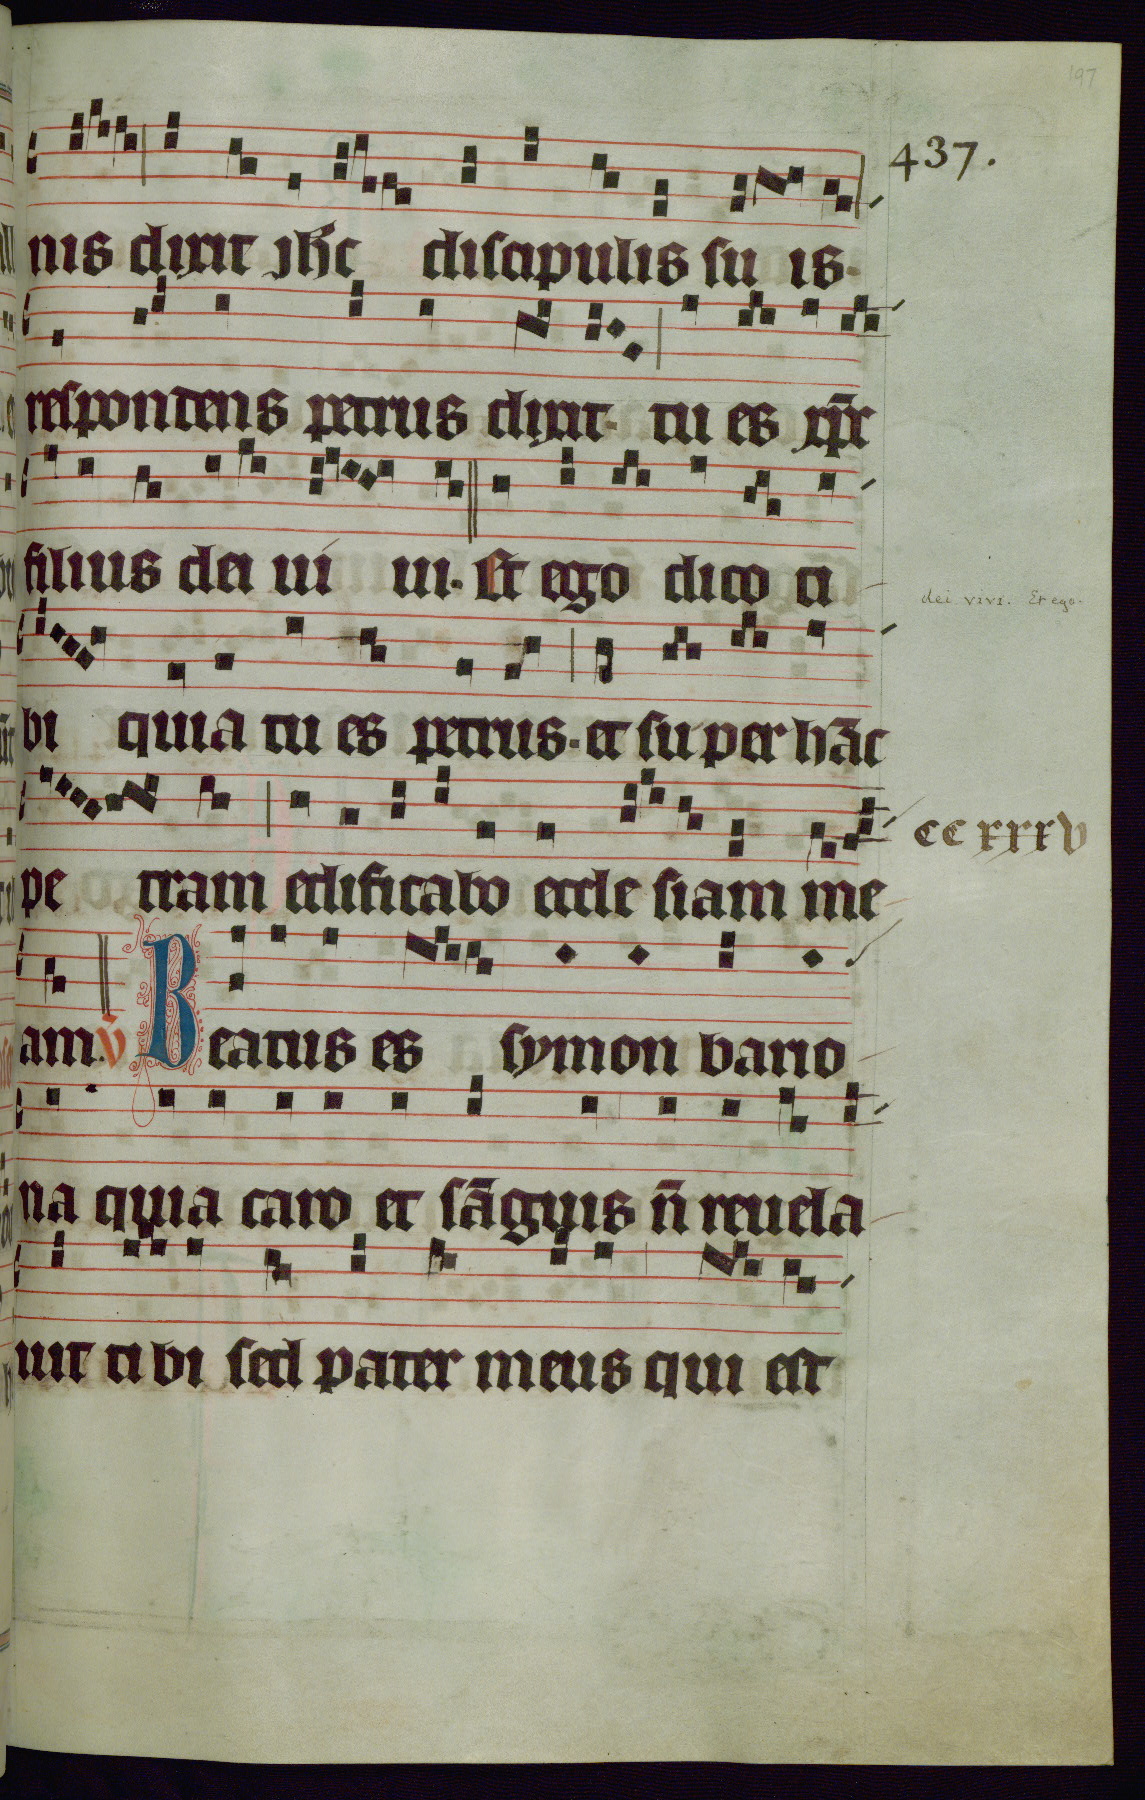 197
437.
nis dixit jħc discipulis su is.
respondens petrus dixit. tu es xp̄c
filius dei ui ui. Et ego dico ti
dei vivi. Et ego.
bi quia tu es petrus. et super hāc
pe tram edificabo eccle siam me
CCxxxv
am. v̄ Beatus es symon bario
na quia caro et sāguis n̄ reuela
uit ti bi sed pater meus qui est